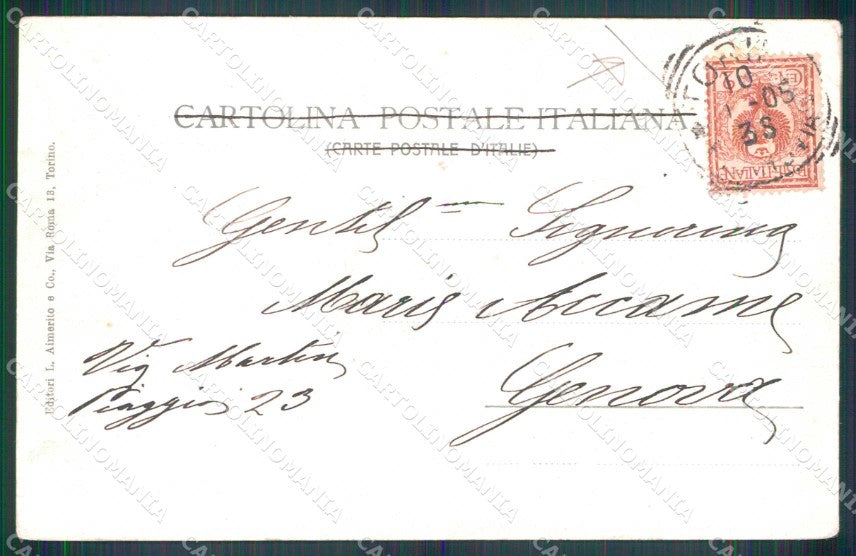 CARTOLINA POSTALE ITALIANA
(CARTE POSTALE D'ITALIE)
TORI
10
1-05
3S
Gentil Signorina
Maria Accame
Genova
Via Martin
Piaggio 23
Editori L. Aimerito e Co., Via Roma 13, Torino.
CARTOLINOMANIA